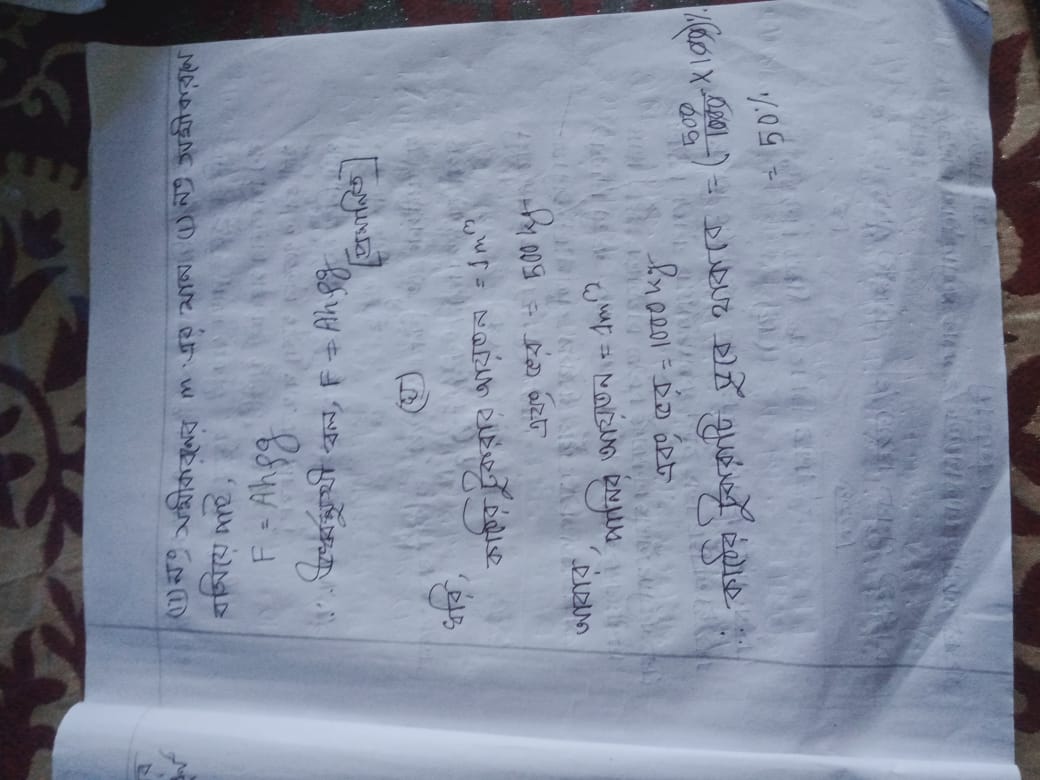 (ii) নং সমীকরণে m এর মান (i) নং সমীকরণে
বসিয়ে পাই,
F = Ahρg
∴ ঊর্ধ্বমুখী বল, F = Ahρg [প্রমাণিত]
(ঘ)
ধরি,
কাঠের টুকরার আয়তন = 1m³
এবং ভর = 500 kg
আবার, পানির আয়তন = 1m³
এবং ভর = 1000 kg
∴ কাঠের টুকরাটি ডুবে থাকবে = (500/1000 × 100)%
= 50%